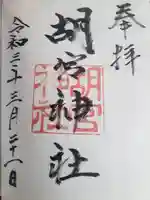 奉拝
胡宮神社
令和三年三月二十八日
胡宮
神社